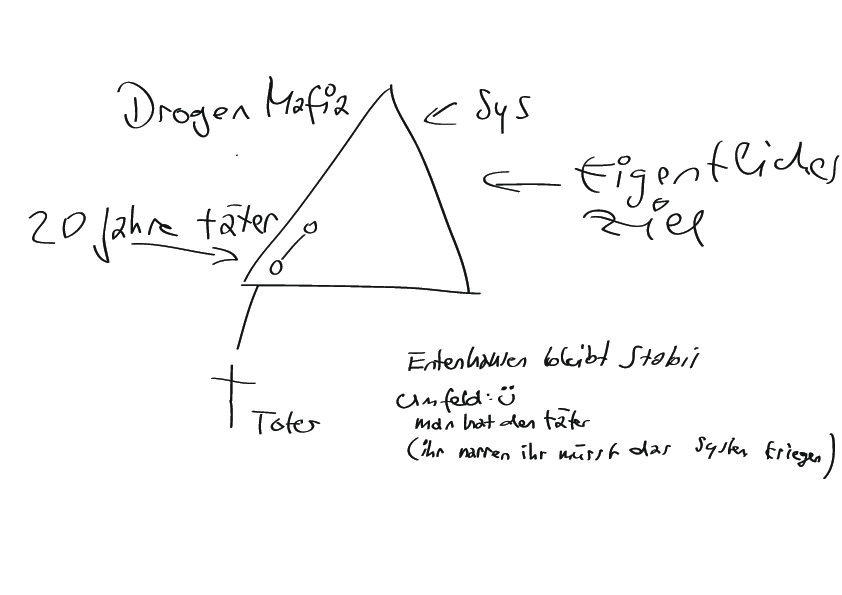 Drogen Mafia
← Sys
← Eigentliches
Ziel
20 Jahre täter
Toter
Entenhausen bleibt Stabil
Umfeld: Ü
man hat den täter
(ihr narren ihr müsst das System kriegen)